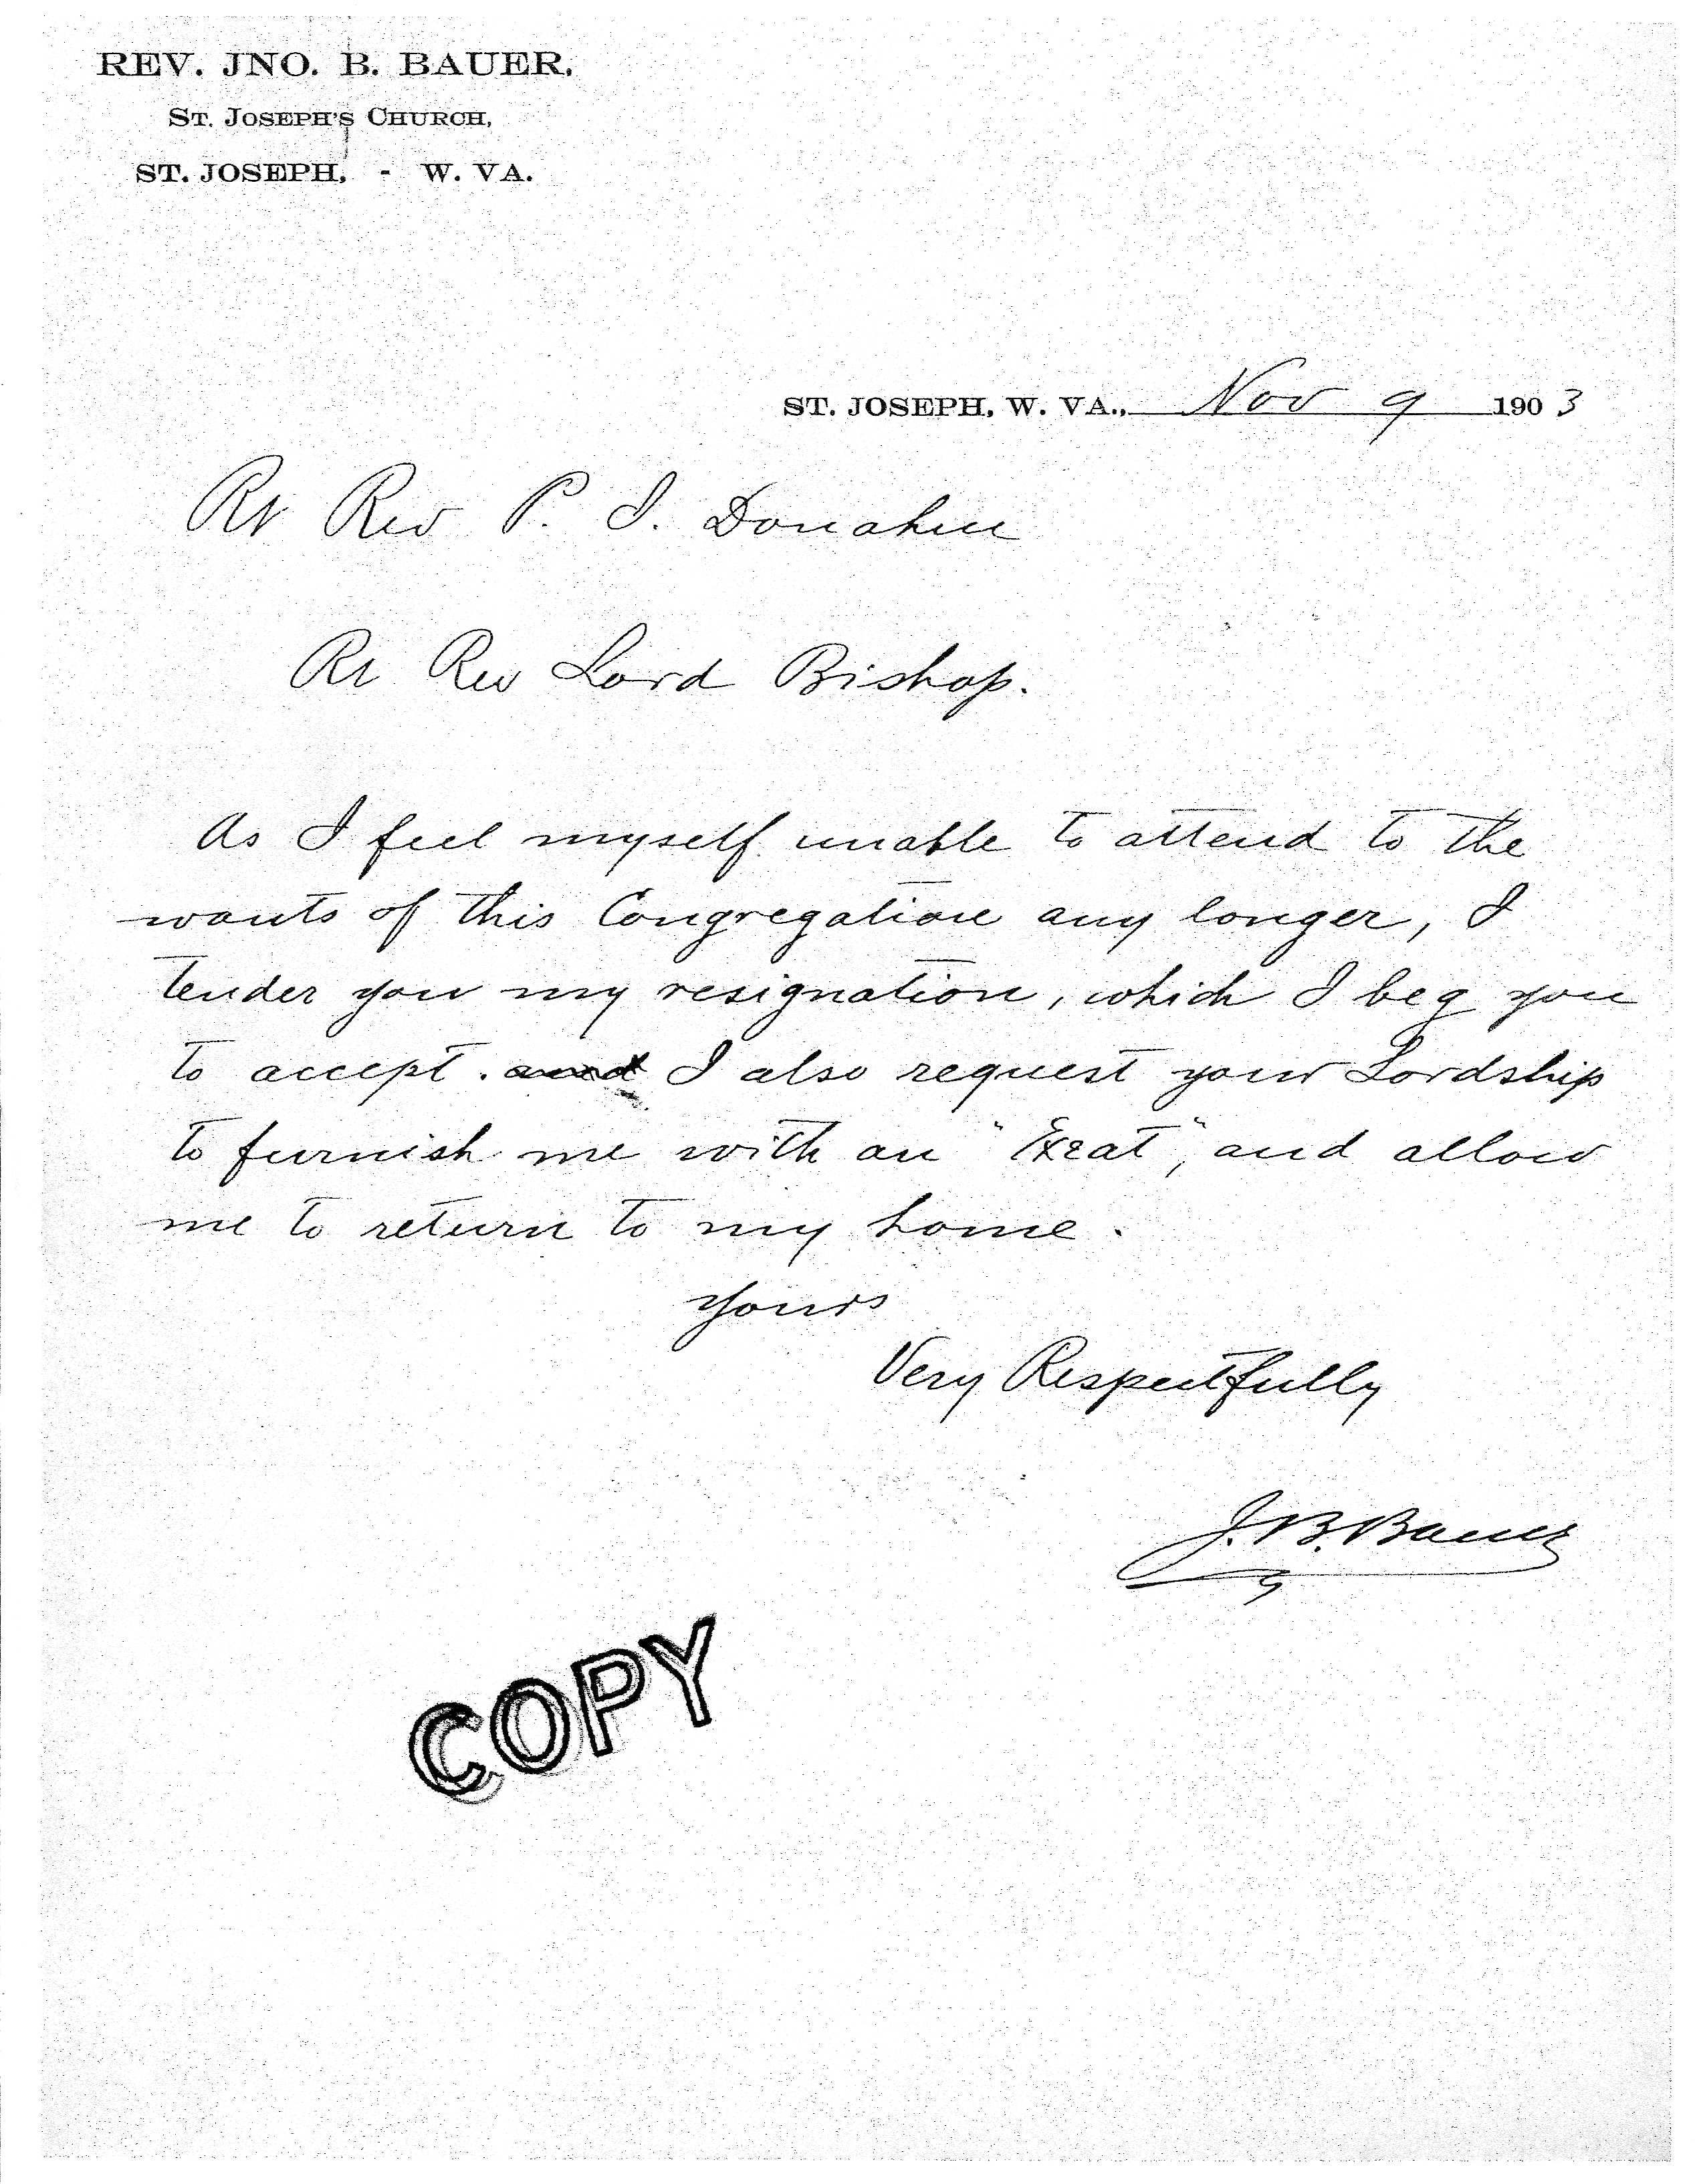 REV. JNO. B. BAUER,
ST. JOSEPH'S CHURCH,
ST. JOSEPH, - W. VA.
ST. JOSEPH, W. VA., Nov 9 1903
Rt Rev P. J. Donahue
Rt Rev Lord Bishop.
As I feel myself unable to attend to the
wants of this Congregation any longer, I
tender you my resignation, which I beg you
to accept. and I also request your Lordship
to furnish me with an "Exeat", and allow
me to return to my home.
Yours
Very Respectfully
J. B. Bauer
COPY